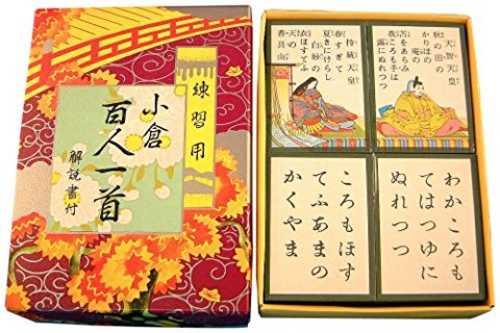 練習用
小倉
百人一首
解説書付
天智天皇
秋の田の
かりほの
庵の
苫をあらみ
ころも手は
露に
ぬれつつ
持統天皇
春すぎて
夏きにけらし
白妙の
ほすてふ
天の
香具山
わかころも
てはつゆに
ぬれつつ
ころもほす
てふあまの
かくやま